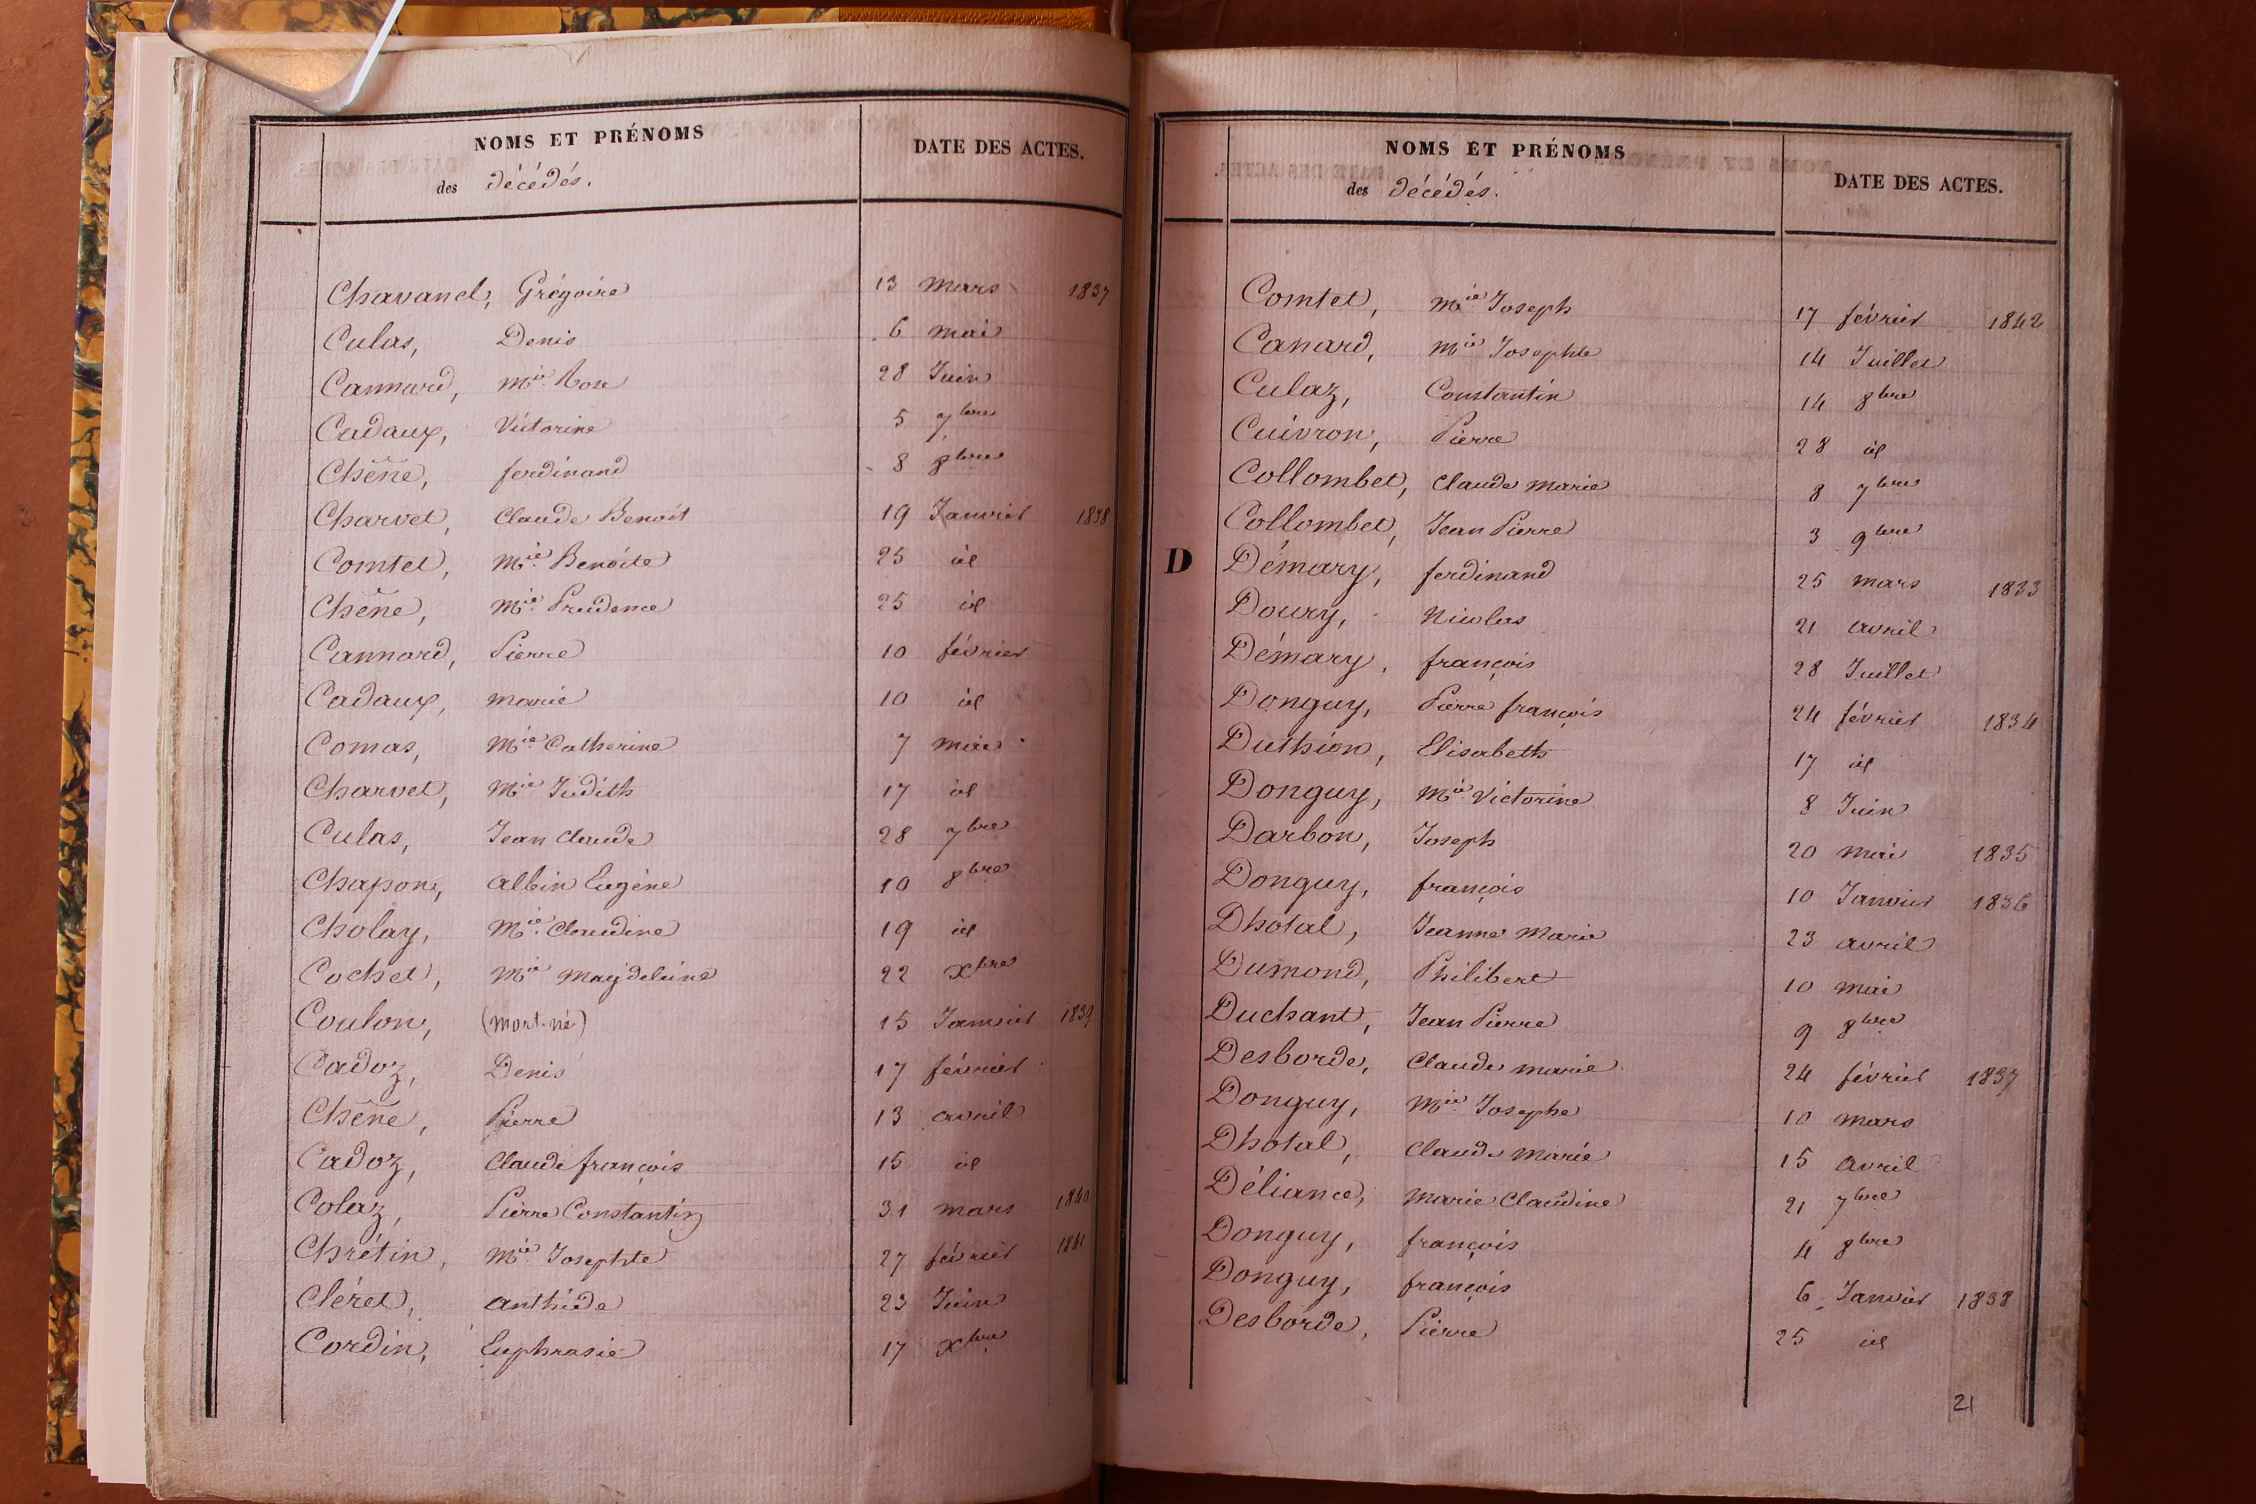 NOMS ET PRÉNOMS
des décédés.
DATE DES ACTES.
Chavanel, Grégoire 13 mars 1837
Culas, Denis 6 mai
Cannard, Mie Rose 28 Juin
Cadaux, Victorine 5 7bre
Chêne, ferdinand 8 8bre
Charvet, Claude Benoit 19 Janvier 1838
Comtet, Mie Benoite 25 id
Chêne, Mie Prudence 25 id
Cannard, Pierre 10 février
Cadaux, marie 10 id
Comas, Mie Catherine 7 mai
Charvet, Mie Judith 17 id
Culas, Jean Claude 28 7bre
Chapon, albin Eugène 10 8bre
Cholay, Mie Claudine 19 id
Cochet, Mie Magdeleine 22 Xbre
Coulon, (mort-né) 15 Janvier 1839
Cadoz, Denis 17 février
Chêne, Pierre 13 avril
Cadoz, Claude françois 15 id
Colaz, Pierre Constantin 31 mars 1840
Chrétin, Mie Josephte 27 février 1841
Cléret, anthide 23 Juin
Cordin, Euphrasie 17 Xbre
NOMS ET PRÉNOMS
des décédés.
DATE DES ACTES.
Comtet, Mie Joseph 17 février 1842
Canard, Mie Josephte 14 Juillet
Culaz, Constantin 14 8bre
Cuivron, Pierre 28 id
Collombet, Claude marie 8 7bre
Collombet, Jean Pierre 3 9bre
D Démary, ferdinand 25 mars 1833
Doury, Nicolas 21 avril
Démary, françois 28 Juillet
Donguy, Pierre françois 24 février 1834
Duthion, Elisabeth 17 id
Donguy, Mie Victorine 8 Juin
Darbon, Joseph 20 mai 1835
Donguy, françois 10 Janvier 1836
Dhotal, Jeanne Marie 23 avril
Dumond, Philibert 10 mai
Duchant, Jean Pierre 9 8bre
Desborde, Claude marie 24 février 1837
Donguy, Mie Josephe 10 mars
Dhotal, Claude Marie 15 avril
Déliance, Marie Claudine 21 7bre
Donguy, françois 4 8bre
Donguy, françois 6 Janvier 1838
Desborde, Pierre 25 id
21